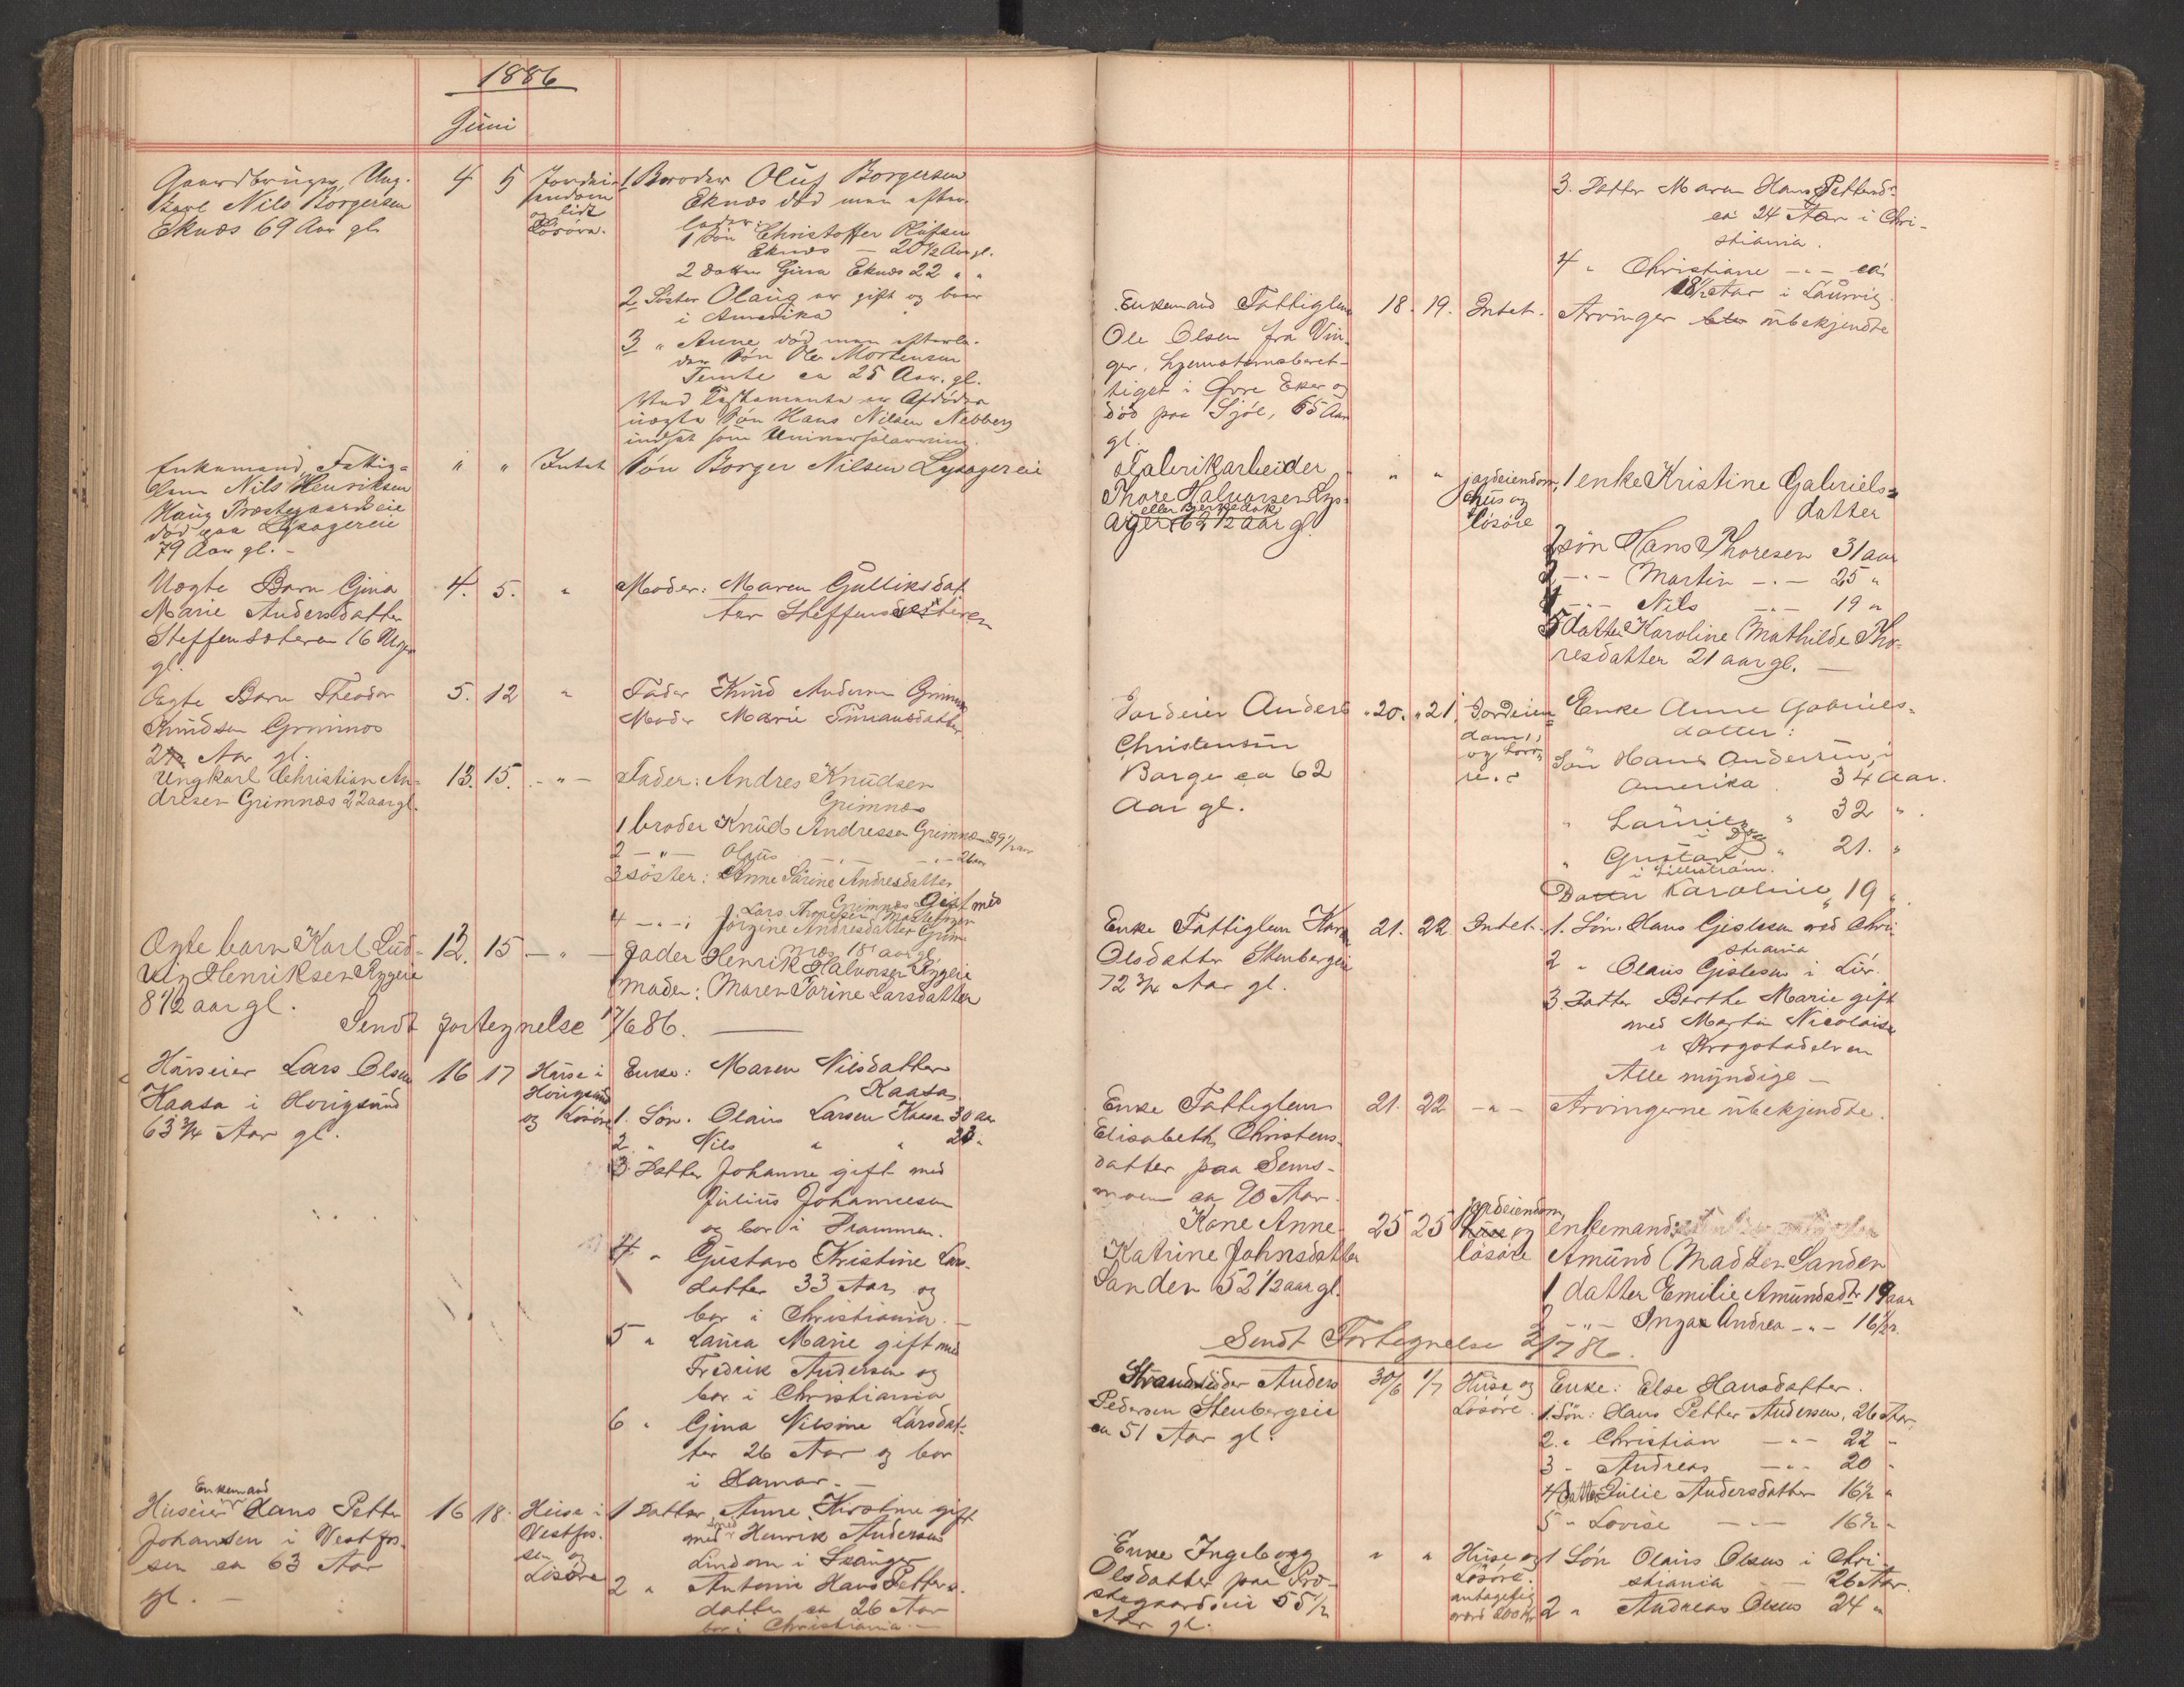 1886
Juni
Gaardbruger, Ung-
karl Nils Borgersen
Eknæs 69 Aar gl.
4 5
Jordei-
endom
og lidt
Løsøre.
1 Broder Oluf Borgersen
Eknæs død men efter-
lader:
1 Søn Christoffer Olufsen
Eknæs — 20½ Aar gl.
2 Datter Gina Eknæs 22 " "
2 Søster Olaug er gift og boer
i Amerika
3 " Anne død men efterla-
der Søn Ole Mortensen
Temte ca 25 Aar. gl.
Ved Testamente er Afdødes
uægte Søn Hans Nilsen Nebberg
indsat som Universalarving.
Enkemand, Fattig-
lem Nils Henriksen
Haug Præstegaardseie
død paa Lysagereie
79 Aar gl. -
" " Intet
Søn Borger Nilsen Lysagereie
Uægte Barn Gina
Marie Andersdatter
Steffensæteren 16 Uger
gl.
4. 5. "
Moder: Maren Gulliksdat
ter Steffensæteren
Ægte Barn Theodor
Knudsen Grimnæs
2 Aar gl.
5. 12 "
Fader Knud Andersen Grimnæs
Moder Marie Simensdatter
Ungkarl Christian An-
dresen Grimnæs 22 aar gl.
13. 15. - " -
Fader: Andres Knudsen
Grimnæs
1 broder Knud Andressen Grimnæs 39½ aar
2 - " - Olaus - " - - " - 26 aar
3 søster: Anne Sørine Andresdatter
Grimnæs Gift med
Lars Thoresen
4 - " - : Jørgine Andresdatter Grim-
næs 18 aar gl.
Ægte barn Karl Lud-
vig Henriksen Rygeie
8½ aar gl.
12. 15 - " -
Fader Henrik Halvorsen Rygeie
moder: Maren Torine Larsdatter
Sendt fortegnelse 17/6 86.
Huseier Lars Olsen
Kaasa i Hougsund
63¾ Aar gl.
16 17
Huse i
Hougsund
og Løsøre
Enke: Maren Nilsdatter
Kaasa
1. Søn. Olaus Larsen Kaasa 30 aar
2. " Nils " " 23 "
3. Datter Johanne gift med
Julius Johannesen
og bor i Drammen.
4 " Gustava Kristine Lars-
datter 33 Aar og
bor i Christiania. -
5 " Laura Marie gift med
Fredrik Andersen og
bor i Christiania
6 " Gina Nilsine Larsdat-
ter 26 Aar og bor
i Hamar. -
Enkemand
Huseier Hans Petter
Johansen i Vestfos-
sen ca 63 Aar
gl. -
16 18.
Huse i
Vestfos-
sen og
Løsøre
1 Datter Anne Kirstine gift
med Smed Henrik Andersen
Lindom i Skauger
2 " Antonie Hans Petters-
datter ca 26 Aar
bor i Christiania. -
3. Datter Maren Hans Pettersd.
ca 24 Aar i Chri-
stiania.
4 " Christiane - " - ca
18½ Aar i Laurvig.
Enkemand Fattiglem
Ole Olsen fra Vin-
ger, hjemstamsberet-
tiget i Øvre Eker og
død paa Sjøl, 65 Aar
gl.
18. 19. Intet.
Arvinger ubekjendte
Fabrikarbeider
Thore Halvorsen Lys-
eller Bjerkedok
ager 62½ aar gl.
" "
jordeiendom,
hus og
løsøre
1 enke Kristine Gabriels-
datter
2 søn Hans Thoresen 31 aar
3 - " - Martin - " - 25 "
4 - " - Nils - " - 19 "
5 datter Karoline Mathilde Tho-
resdatter 21 aar gl. —
Jordeier Anders
Christensen
Barge ca 62
Aar gl.
20. 21
Jordeien-
dom
og Løsø-
re.
Enke Anne Gabriels-
datter:
Søn Hans Andersen, i
Amerika. 34 Aar.
" Laurits " 32 "
" Gustav " 21. "
i Lillestrøm.
Datter Karoline " 19 "
Enke Fattiglem Karen
Olsdatter Stenbergeie
72¾ Aar gl.
21. 22. Intet.
1. Søn. Hans Gislesen ved Chri-
stiania
2 " Olaus Gislesen i Lier.
3. Datter Berthe Marie gift
med Martin Nicolaisen
i Krogstadelven
Alle myndige —
Enke Fattiglem
Elisabeth Christens-
datter paa Sems-
moen ca 90 Aar.
21. 22 - " -
Arvingerne ubekjendte.
Kone Anne
Katrine Johnsdatter
Sanden 52½ aar gl.
25 25
jordeiendom,
huse og
løsøre
enkemand:
Amund Madsen Sanden
1 datter Emilie Amundsdtr 19 aar
2 - " - Inga Andrea - " - 16½ "
Sendt Fortegnelse 2/7 86.
Strandsidder Anders
Pedersen Stenbergeie
ca 51 Aar gl.
30/6 1/7
Huse og
Løsøre
Enke: Else Hansdatter.
1. Søn: Hans Petter Andersen, 26 Aar,
2. " Christian - " - 22 "
3 " Andreas - " - 20 "
4 Datter Julie Andersdatter 16½ "
5 " Lovise - " - 16½ "
Enke Ingeborg
Olsdatter paa Præ-
stegaardseie 55½
Aar gl.
" "
Huse og
Løsøre.
antagelig
værd 200 Kr.
1 Søn Olaus Olsen i Chri-
stiania — 26 Aar.
2 " Andreas Olsen 24 "